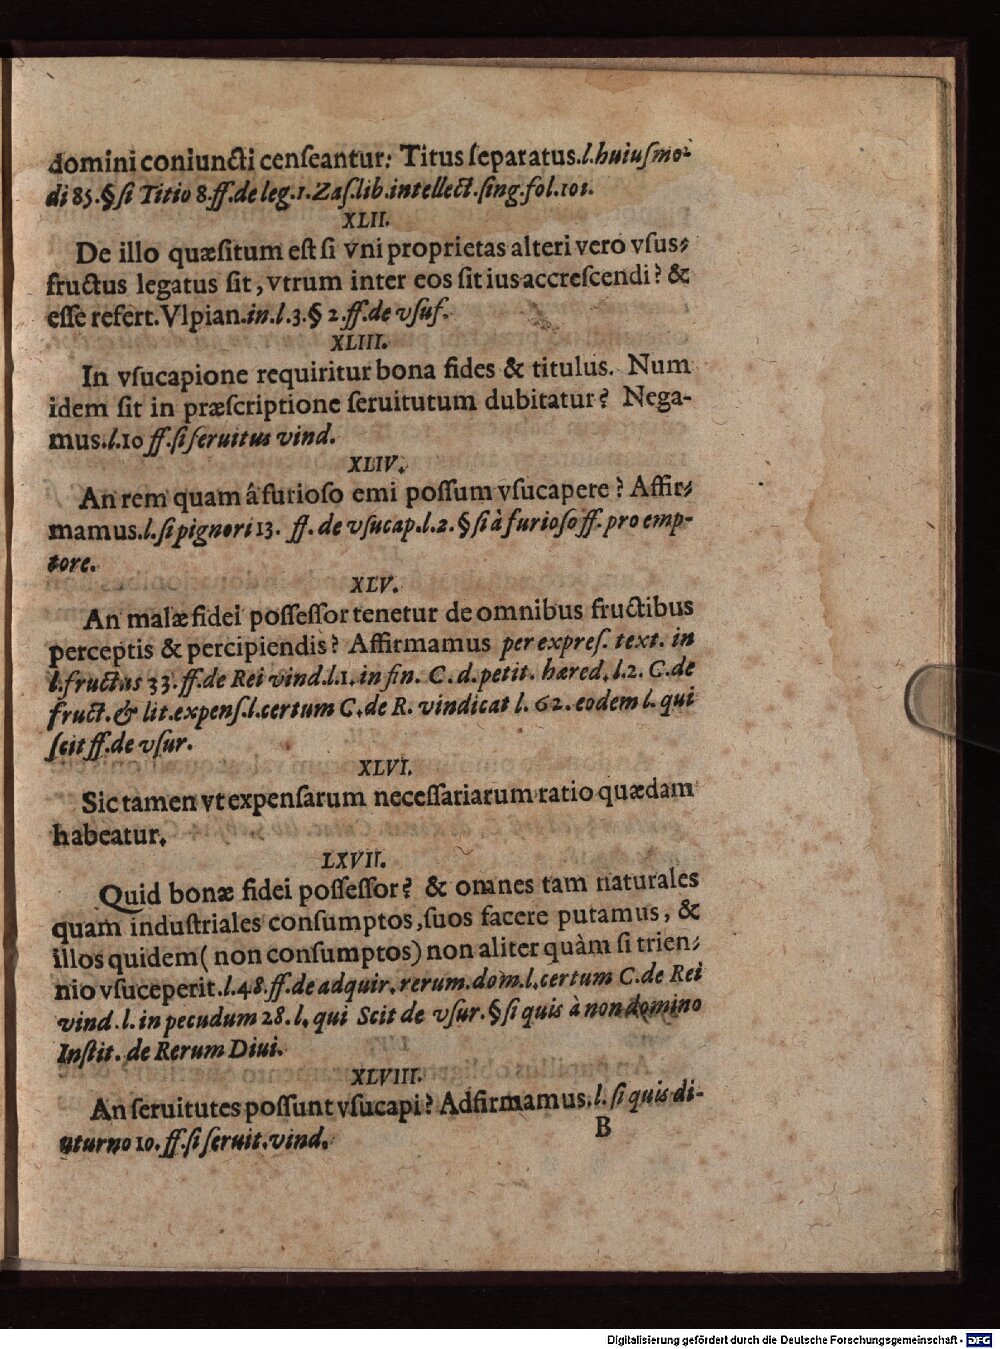 domini coniuncti cenſeantur: Titus ſeparatus. l. huiuſmo-
di 85. § ſi Titio 8. ff. de leg. 1. Zaſ. lib. intellect. ſing. fol. 101.
XLII.
De illo quæſitum eſt ſi vni proprietas alteri vero vſus-
fructus legatus ſit, vtrum inter eos ſit ius accreſcendi? &
eſſe refert. Vlpian. in. l. 3. § 2. ff. de vſuf.
XLIII.
In vſucapione requiritur bona fides & titulus. Num
idem ſit in præſcriptione ſeruitutum dubitatur? Nega-
mus. l. 10 ff. ſi ſeruitus vind.
XLIV.
An rem quam â furioſo emi poſſum vſucapere? Affir-
mamus. l. ſi pignori 13. ff. de vſucap. l. 2. § ſi à furioſo ff. pro emp-
tore.
XLV.
An malæ fidei poſſeſſor tenetur de omnibus fructibus
perceptis & percipiendis? Affirmamus per expreſ. text. in
l. fructus 33. ff. de Rei vind. l. 1. in fin. C. d. petit. hæred. l. 2. C. de
fruct. & lit. expenſ. l. certum C. de R. vindicat l. 62. eodem l. qui
ſcit ff. de vſur.
XLVI.
Sic tamen vt expenſarum neceſſariarum ratio quædam
habeatur.
LXVII.
Quid bonæ fidei poſſeſſor? & omnes tam naturales
quam induſtriales conſumptos, ſuos facere putamus, &
illos quidem (non conſumptos) non aliter quàm ſi trien-
nio vſuceperit. l. 48. ff. de adquir. rerum. dom. l. certum C. de Rei
vind. l. in pecudum 28. l. qui Scit de vſur. § ſi quis à non domino
Inſtit. de Rerum Diui.
XLVIII.
An ſeruitutes poſſunt vſucapi? Adfirmamus. l. ſi quis di-
uturno 10. ff. ſi ſeruit. vind.
B
Digitalisierung gefördert durch die Deutsche Forschungsgemeinschaft - DFG